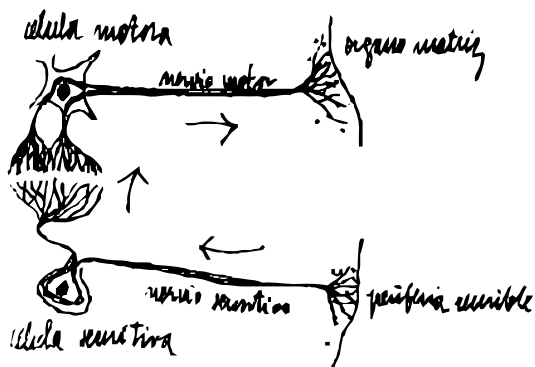 celula motora
organo motriz
nervio motor
nervio sensitivo
periferia sensible
celula sensitiva